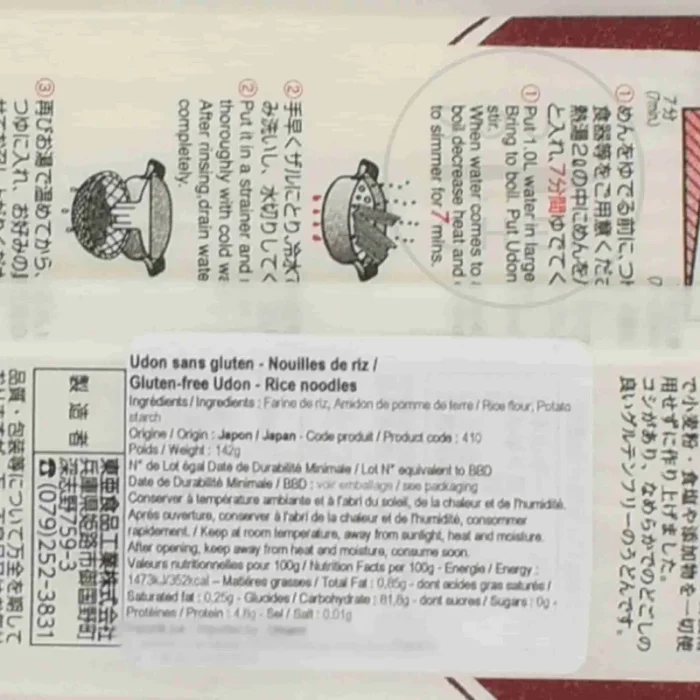 7分
(7min.)
①めんをゆでる前に、つ
食器等をご用意くだ
熱湯2ℓの中にめんを
と入れ、7分間ゆでてく
① Put 1.0L water in large
Bring to boil. Put Udon
stir.
When water comes to
boil decrease heat and
to simmer for 7 mins.
②手早くザルにとり、冷水で
み洗いし、水切りしてく
② Put it in a strainer and
thoroughly with cold wa
After rinsing, drain wate
completely.
③再びお湯で温めてから、
つゆに入れ、お好みの
Udon sans gluten - Nouilles de riz /
Gluten-free Udon - Rice noodles
Ingrédients / Ingredients : Farine de riz, Amidon de pomme de terre / Rice flour, Potato
starch
Origine / Origin : Japon / Japan - Code produit / Product code : 410
Poids / Weight : 142g
N° de Lot égal Date de Durabilité Minimale / Lot N° equivalent to BBD
Date de Durabilité Minimale / BBD : voir emballage / see packaging
Conserver à température ambiante et à l'abri du soleil, de la chaleur et de l'humidité.
Après ouverture, conserver à l'abri de la chaleur et de l'humidité, consommer
rapidement. / Keep at room temperature, away from sunlight, heat and moisture.
After opening, keep away from heat and moisture, consume soon.
Valeurs nutritionnelles pour 100g / Nutrition Facts per 100g - Energie / Energy :
1473kJ/352kcal – Matières grasses / Total Fat : 0,85g - dont acides gras saturés /
Saturated fat : 0,25g - Glucides / Carbohydrate : 81,8g - dont sucres / Sugars : 0g -
Protéines / Protein : 4,8g - Sel / Salt : 0,01g
で小麦粉・食塩や添加物を一切使
用せずに作り上げました。
コシがあり、なめらかでのどごしの
良いグルテンフリーのうどんです。
製造者
東亜食品工業株式会社
兵庫県姫路市御国野町
深志野759-3
☎(079)252-3831
品質・包装等について万全を期して